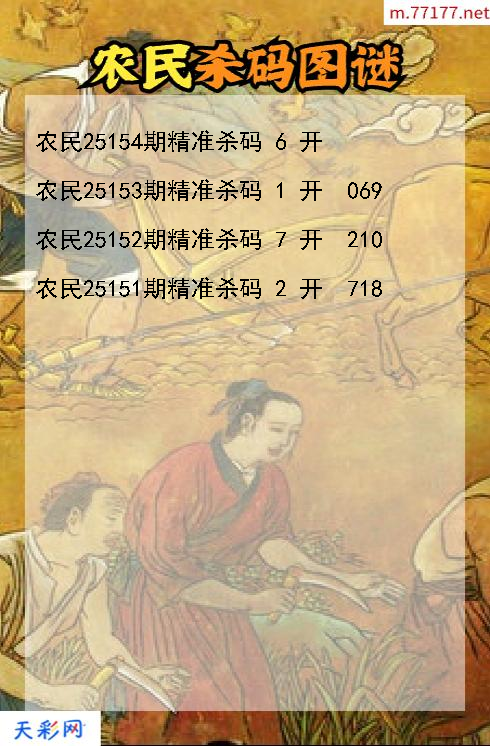 m.77177.net
农民杀码图谜
农民25154期精准杀码 6 开
农民25153期精准杀码 1 开 069
农民25152期精准杀码 7 开 210
农民25151期精准杀码 2 开 718
天彩网